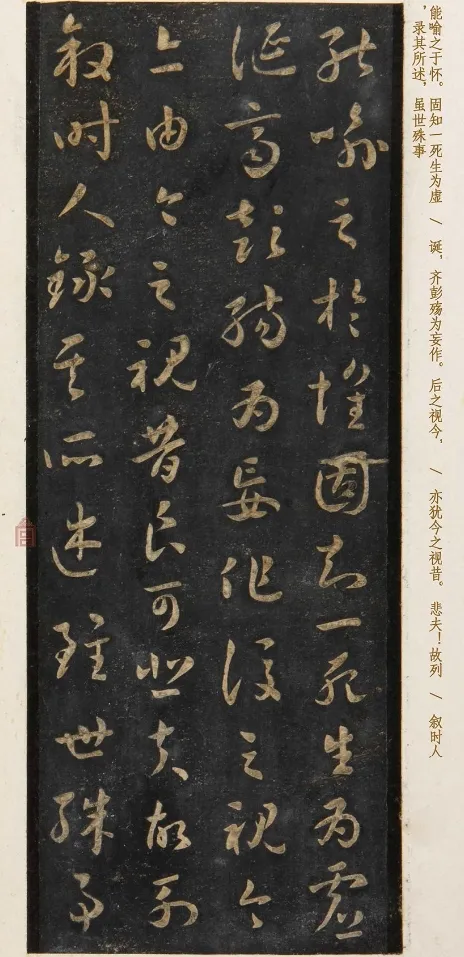 能喻之于怀。固知一死生为虚 / 诞，齐彭殇为妄作。后之视今， / 亦犹今之视昔。 悲夫！故列 / 叙时人
，录其所述，虽世殊事
能喻之於懷固知一死生為虛
誕齊彭殤為妄作後之視今
亦由今之視昔良可悲夫故列
叙時人錄其所述雖世殊事